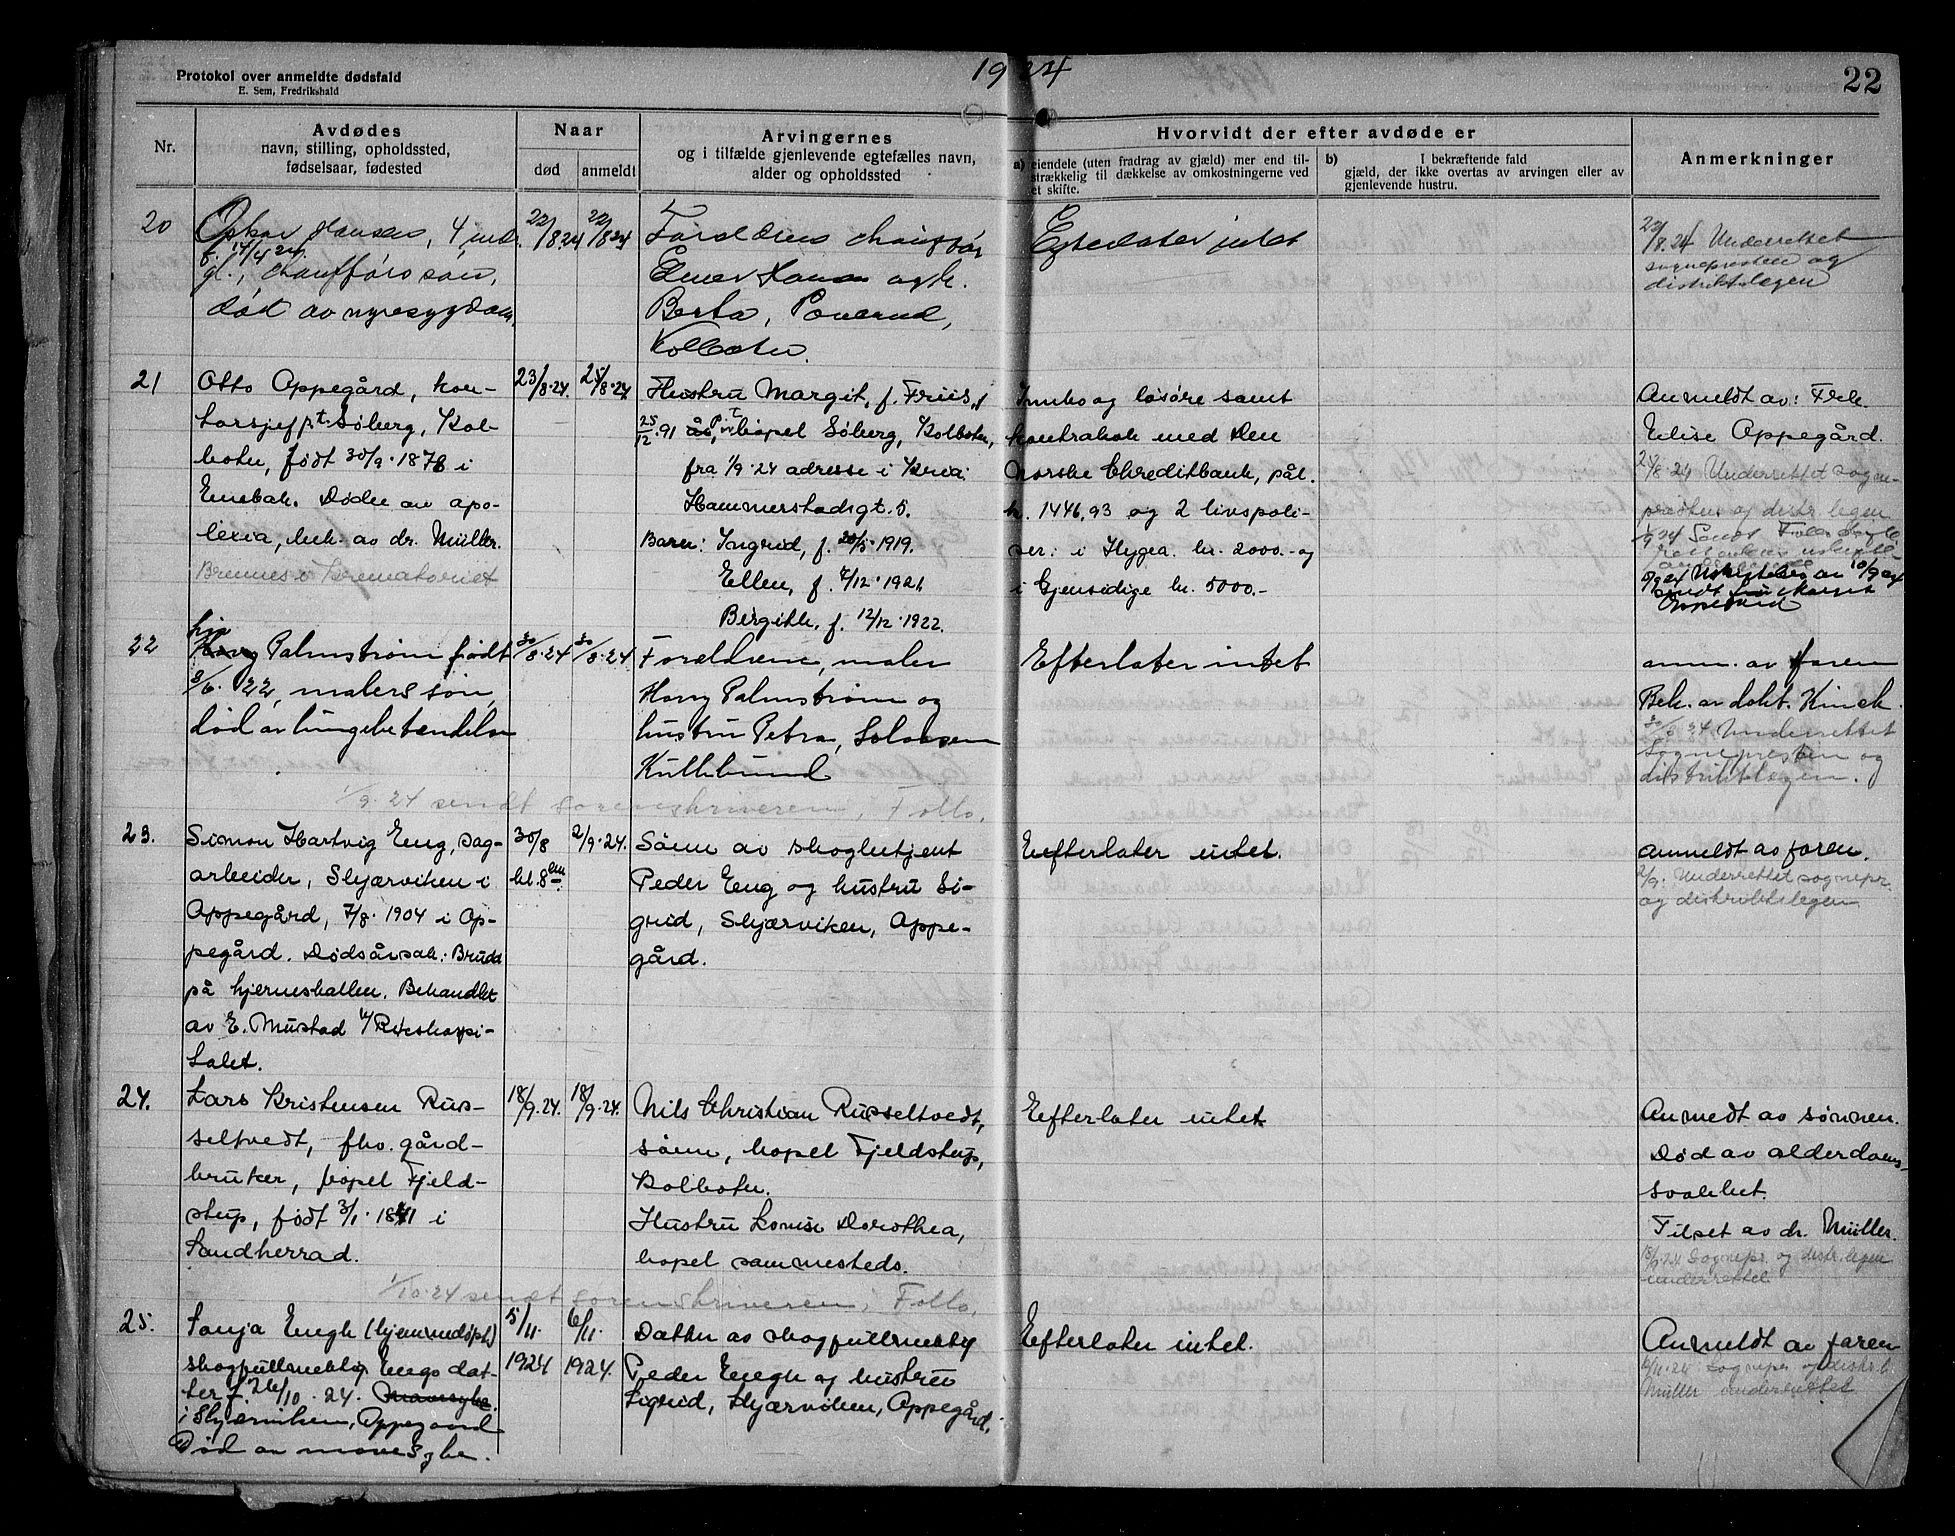 Protokol over anmeldte dødsfald
E. Sem, Fredrikshald
1924
22
Nr.
Avdødes
navn, stilling, opholdssted,
fødselsaar, fødested
Naar
død
anmeldt
Arvingernes
og i tilfælde gjenlevende egtefælles navn,
alder og opholdssted
Hvorvidt der efter avdøde er
a) eiendele (uten fradrag av gjæld) mer end til-
strækkelig til dækkelse av omkostningerne ved
et skifte.
b) I bekræftende fald
gjæld, der ikke overtas av arvingen eller av
gjenlevende hustru.
Anmerkninger
20
Hansen, 4 mdr.
f. 17/4 24
gl., chaufførs søn,
død av nyresygdom.
22/8 24
22/8 24
Forældrene chauffør
Hansen og h.
Berta,
Kolbotn.
Efterlater intet
22/8. 24 Underrettet
sogneprsten og
distriktslægen
21
Otto Oppegård, kon-
torsjef, p.t. Søberg, Kol-
botn, født 30/9. 1878 i
Enebak. Døden av apo-
lexia, beh. av dr. Müller.
Brennes i Krematoriet
23/8. 24.
25/8. 24.
Hustru Margit, f. Friis, f
25/12. 91 bopel Søberg, Kolbotn,
fra 1/9. 24 adresse i Kria:
Hammerstadsgt. 5.
Barn: Ingrid, f. 20/5. 1919.
Ellen, f. 7/12. 1921.
Bergith, f. 12/12. 1922.
Innbo og løsøre samt
kontrabok med Den
norske Creditbank, pål.
k. 1446,93 og 2 livspoli-
ser: i Hygea kr. 2000.- og
i Gjensidige kr. 5000.-
Anmeldt av: Frk.
Elise Oppegård.
Underrettet sogne-
presten og distr. legen
Oppegård
22
Palmstrøm født
3/6. 22, malers søn,
død av lungebetendelse
30/8. 24
30/8. 24
Foreldrene, maler
Harry Palmstrøm og
hustru Petra, Solaasen
Kullebund
Efterlater intet
anm. av faren
Beh. av dokt. Kinck.
30/8 24 Underrettet
Sognepresten og
distriktslægen.
1/9. 24 sendt sorenskriveren i Follo.
23.
Simon Hartvig Eng, sag-
arbeider, Skjærviken i
Oppegård, 7/8. 1904 i Op-
pegård. Dødsårsak: Brudd
på hjerneskallen. Behandlet
av E. Mustad v/ Rikshospi-
talet.
30/8
kl. 8 em.
2/9. 24.
Sønn av skogbetjent
Peder Eng og hustru Si-
grid, Skjærviken, Oppe-
gård.
Efterlater intet.
anmeldt av faren.
2/9. Underrettet sognepr.
og distriktslegen
24.
Lars Kristensen Rus-
seltvedt, fhv. gård-
bruker, bopel Fjeld-
stup, født 3/1. 1841 i
Sandherrad.
18/9. 24.
18/9. 24.
Nils Christian Russeltvedt,
sønn, bopel Fjeldstup,
Kolbotn.
Hustru Lovise Dorothea,
bopel sammesteds.
Efterlater intet
Anmedt av sønnen.
Død av alderdoms-
svakhet.
Tilset av dr. Müller.
18/9. 24 Sognepr. og distr. legen
underrettet
1/10. 24 sendt sorenskriveren i Follo.
25.
Sonja Engh (hjemmedøpt)
skogfullmektig Engs dat-
ter f. 26/10. 24.
i Skjærviken, Oppegaard
Død av mavesyke.
5/11.
1924
6/11.
1924.
Datter av skogfullmektig
Peder Engh og hustru
Sigrid, Skjærviken, Oppegård.
Efterlater intet.
Anmeldt av faren
6/11. 24 Sognepr. og distr. l.
Müller underrettet